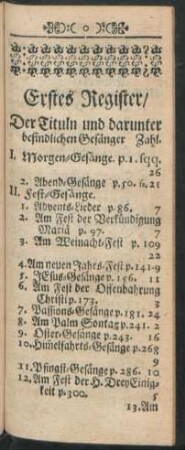 Erstes Register/
Der Tituln und darunter
befindlichen Gesänger Zahl.
I. Morgen-Gesänge. p. 1. sqq.
26
2. Abend-Gesänge p. 50. s. 21
II. Fest-Gesänge.
1. Advents-Lieder p. 86, 7
2. Am Fest der Verkündigung
Mariä p. 97. 7
3. Am Weinacht-Fest p. 109
22
4. Am neuen Jahrs-Fest p. 141-9
5. JEsus-Gesänge p. 156. 11
6. Am Fest der Offenbahrung
Christi p. 173. 3
7. Passions-Gesänge p. 181. 24
8. Am Palm Sontag p. 241. 2
9. Oster-Gesänge p. 243. 16
10. Himelfahrts-Gesänge p. 268
9
11. Pfingst-Gesänge p. 286. 10
12. Am Fest der H. Drey Einig-
keit p. 300. 5
13. Am